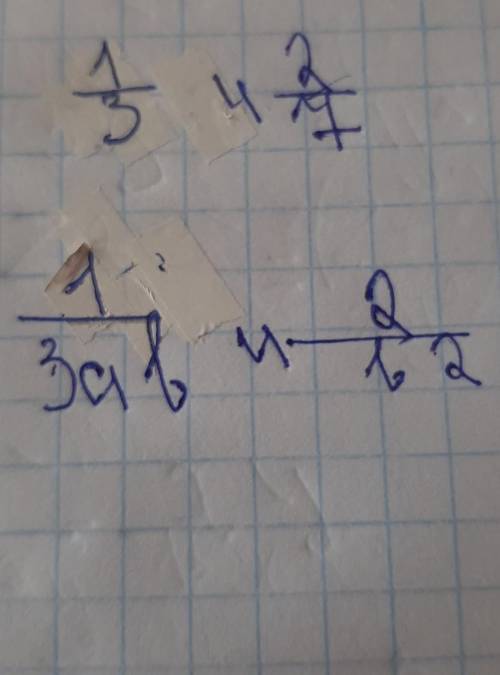 1/3 и 2/7
1/3ab и 2/b2